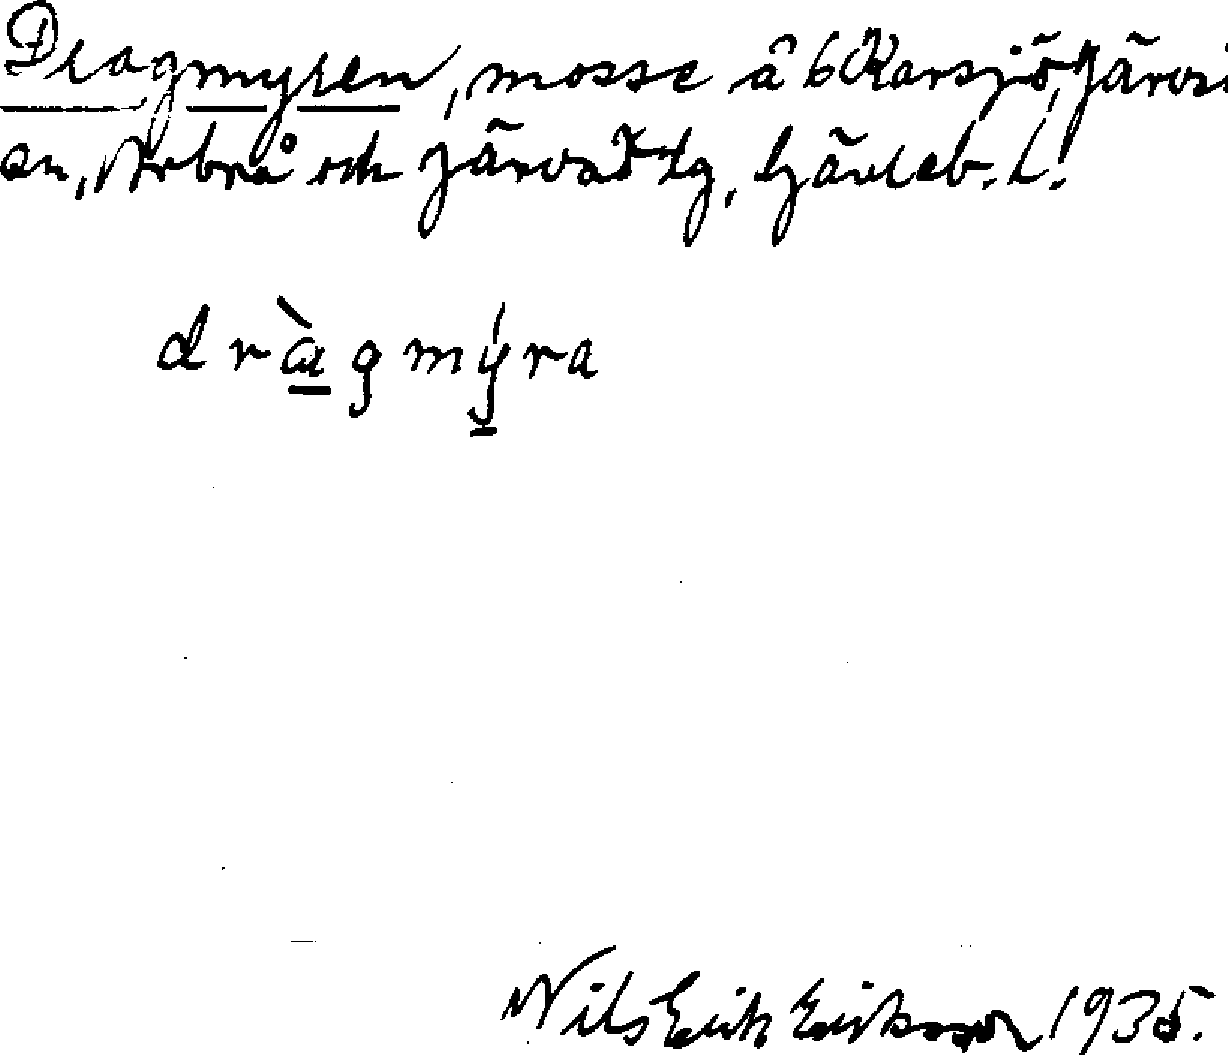 Dragmyren, mosse å b Karsjö, Järvsö
sn, Arbrå och Järvsö tg, Gävleb. l.
dràgmýra
Nils Erik Eriksson 1935.